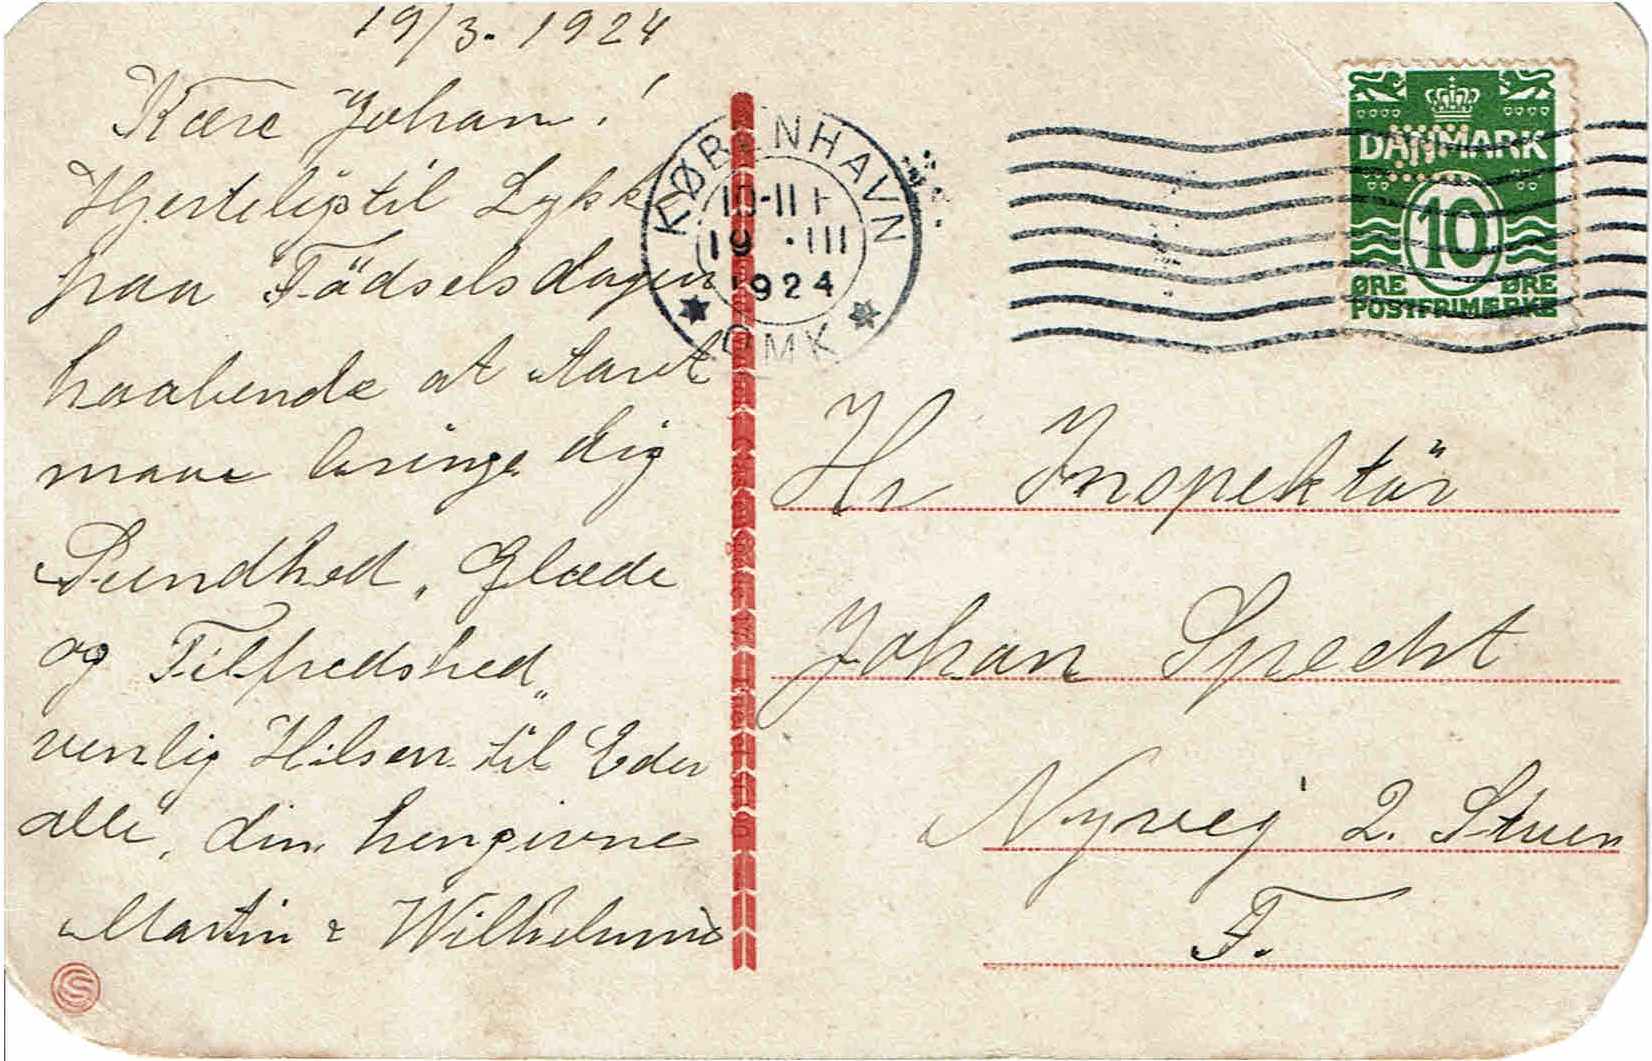 19/3. 1924
Kære Johan!
Hjerteligtil Lykk
paa Födselsdagen
haabende at Aaret
maae bringe dig
Sundhed, Glæde
og Tilfredshed"
venlig Hilsen til Eder
alle, din hengivne
Martin & Wilhelmine
KØBENHAVN
19 .III
1924
OMK
DANMARK
10
ØRE ØRE
POSTFRIMÆRKE
Hr Inspektör
Johan Specht
Nyvej 2. Stuen
F.